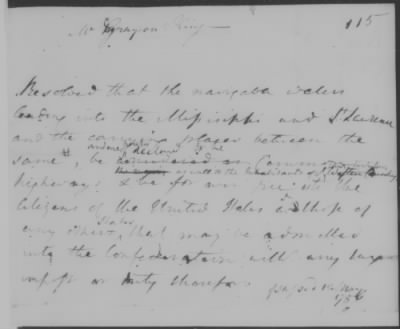 Mr Grayson King
115
Resolved that the navigable waters
leading into the Missisippi and St Laurence
and the carrying places between the
same, be Common
highways & be for ever free to the
Citizens of the United States as those of
States
any other that may be admitted
into the Confederation without any tax
impost or duty therefore